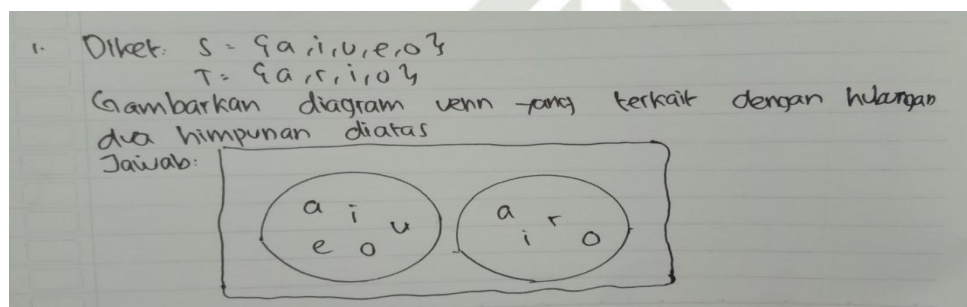 1. Diket: S = {a, i, u, e, o}
T = {a, r, i, o}
Gambarkan diagram venn yang terkait dengan hubungan
dua himpunan diatas
Jawab:
a i u
e o
a r
i o